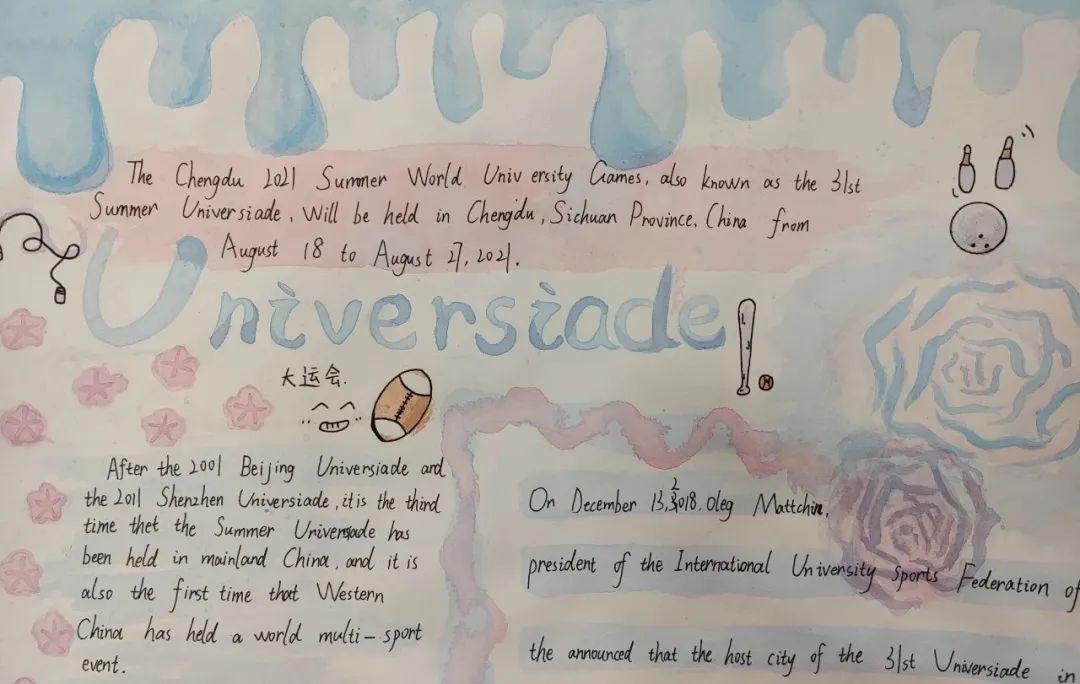 The Chengdu 2021 Summer World University Games, also known as the 31st
Summer Universiade, Will be held in Chengdu, Sichuan Province, China from
August 18 to August 27, 2021.
Universiade
大运会.
After the 2001 Beijing Universiade and
the 2011 Shenzhen Universiade, it is the third
time thet the Summer Universiade has
been held in mainland China, and it is
also the first time that Western
China has held a world multi-sport
event.
On December 13, 2018. Oleg Mattchin,
president of the International University Sports Federation of
the announced that the host city of the 31st Universiade in